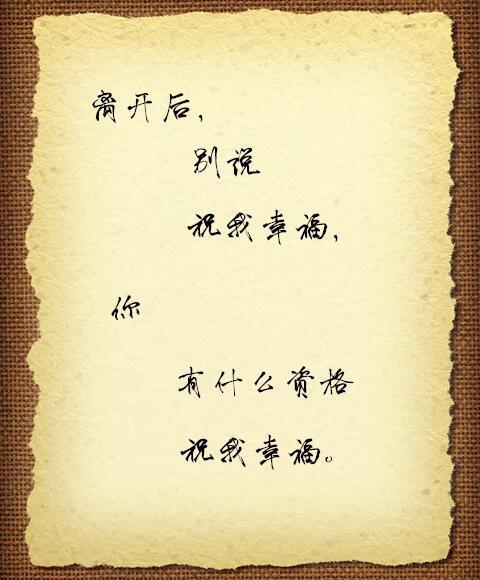 离开后，
别说
祝我幸福，
你
有什么资格
祝我幸福。